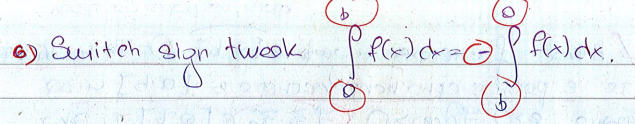 6) Switch sign tweak ∫₀ᵇ f(x) dx = - ∫ᵇ⁰ f(x) dx.